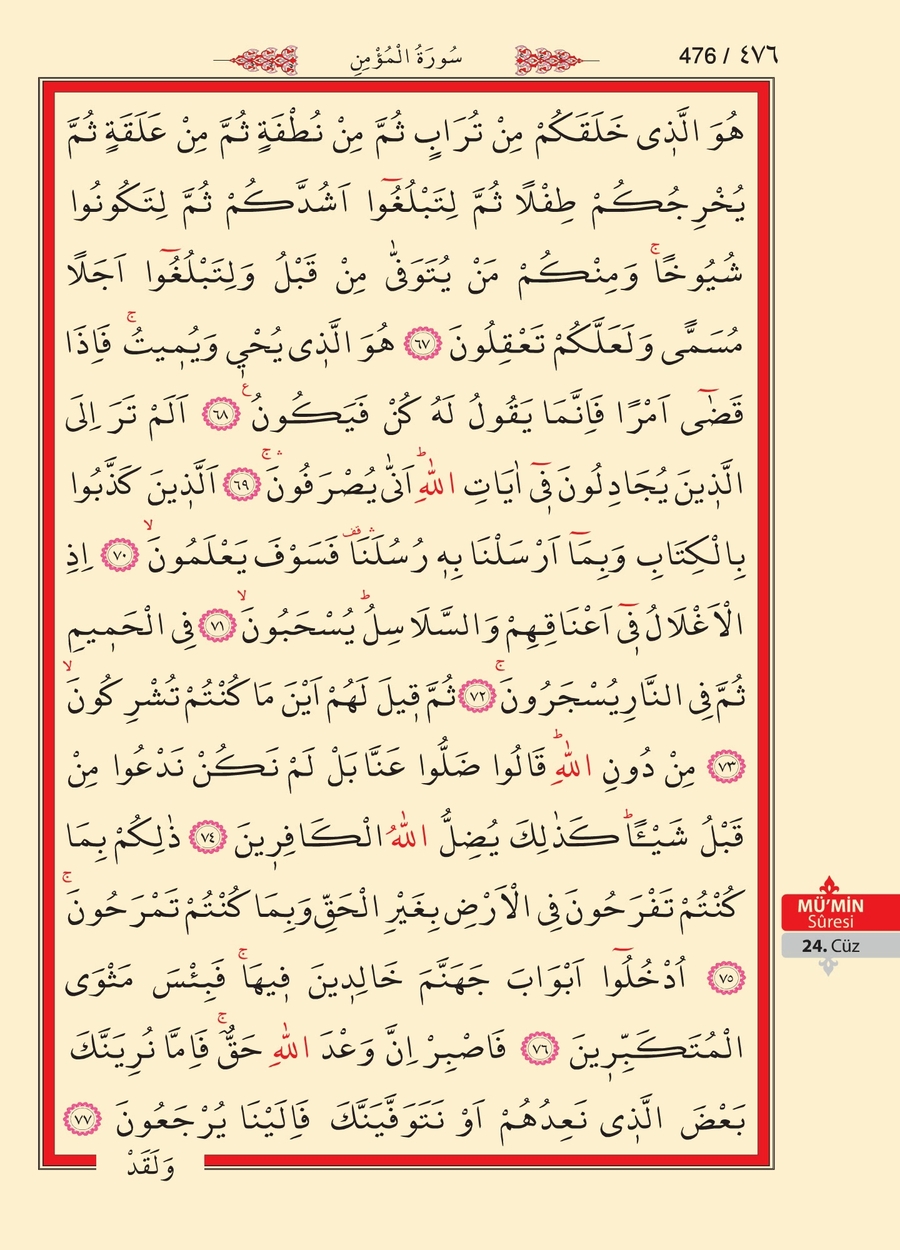 476 / ٤٧٦
سُورَةُ الْمُؤْمِنِ
هُوَ الَّذ۪ى خَلَقَكُمْ مِنْ تُرَابٍ ثُمَّ مِنْ نُطْفَةٍ ثُمَّ مِنْ عَلَقَةٍ ثُمَّ
يُخْرِجُكُمْ طِفْلًا ثُمَّ لِتَبْلُغُٓوا اَشُدَّكُمْ ثُمَّ لِتَكُونُوا
شُيُوخًاۚ وَمِنْكُمْ مَنْ يُتَوَفّٰى مِنْ قَبْلُ وَلِتَبْلُغُٓوا اَجَلًا
مُسَمًّى وَلَعَلَّكُمْ تَعْقِلُونَ ﴿٦٧﴾ هُوَ الَّذ۪ى يُحْي۪ وَيُم۪يتُۚ فَاِذَا
قَضٰٓى اَمْرًا فَاِنَّمَا يَقُولُ لَهُ كُنْ فَيَكُونُ ع ﴿٦٨﴾ اَلَمْ تَرَ اِلَى
الَّذ۪ينَ يُجَادِلُونَ ف۪ٓى اٰيَاتِ اللّٰهِؕ اَنّٰى يُصْرَفُونَۛۚ ﴿٦٩﴾ اَلَّذ۪ينَ كَذَّبُوا
بِالْكِتَابِ وَبِمَٓا اَرْسَلْنَا بِه۪ رُسُلَنَاۛ قف فَسَوْفَ يَعْلَمُونَۙ ﴿٧٠﴾ اِذِ
الْاَغْلَالُ ف۪ٓى اَعْنَاقِهِمْ وَالسَّلَاسِلُؕ يُسْحَبُونَۙ ﴿٧١﴾ فِى الْحَم۪يمِ
ثُمَّ فِى النَّارِ يُسْجَرُونَۚ ﴿٧٢﴾ ثُمَّ ق۪يلَ لَهُمْ اَيْنَ مَا كُنْتُمْ تُشْرِكُونَۙ
﴿٧٣﴾ مِنْ دُونِ اللّٰهِؕ قَالُوا ضَلُّوا عَنَّا بَلْ لَمْ نَكُنْ نَدْعُوا مِنْ
قَبْلُ شَيْـًٔاؕ كَذٰلِكَ يُضِلُّ اللّٰهُ الْكَافِر۪ينَ ﴿٧٤﴾ ذٰلِكُمْ بِمَا
كُنْتُمْ تَفْرَحُونَ فِى الْاَرْضِ بِغَيْرِ الْحَقِّ وَبِمَا كُنْتُمْ تَمْرَحُونَۚ
﴿٧٥﴾ اُدْخُلُٓوا اَبْوَابَ جَهَنَّمَ خَالِد۪ينَ ف۪يهَاۚ فَبِئْسَ مَثْوَى
الْمُتَكَبِّر۪ينَ ﴿٧٦﴾ فَاصْبِرْ اِنَّ وَعْدَ اللّٰهِ حَقٌّۚ فَاِمَّا نُرِيَنَّكَ
بَعْضَ الَّذ۪ى نَعِدُهُمْ اَوْ نَتَوَفَّيَنَّكَ فَاِلَيْنَا يُرْجَعُونَ ﴿٧٧﴾
وَلَقَدْ
MÜ'MİN
Sûresi
24. Cüz